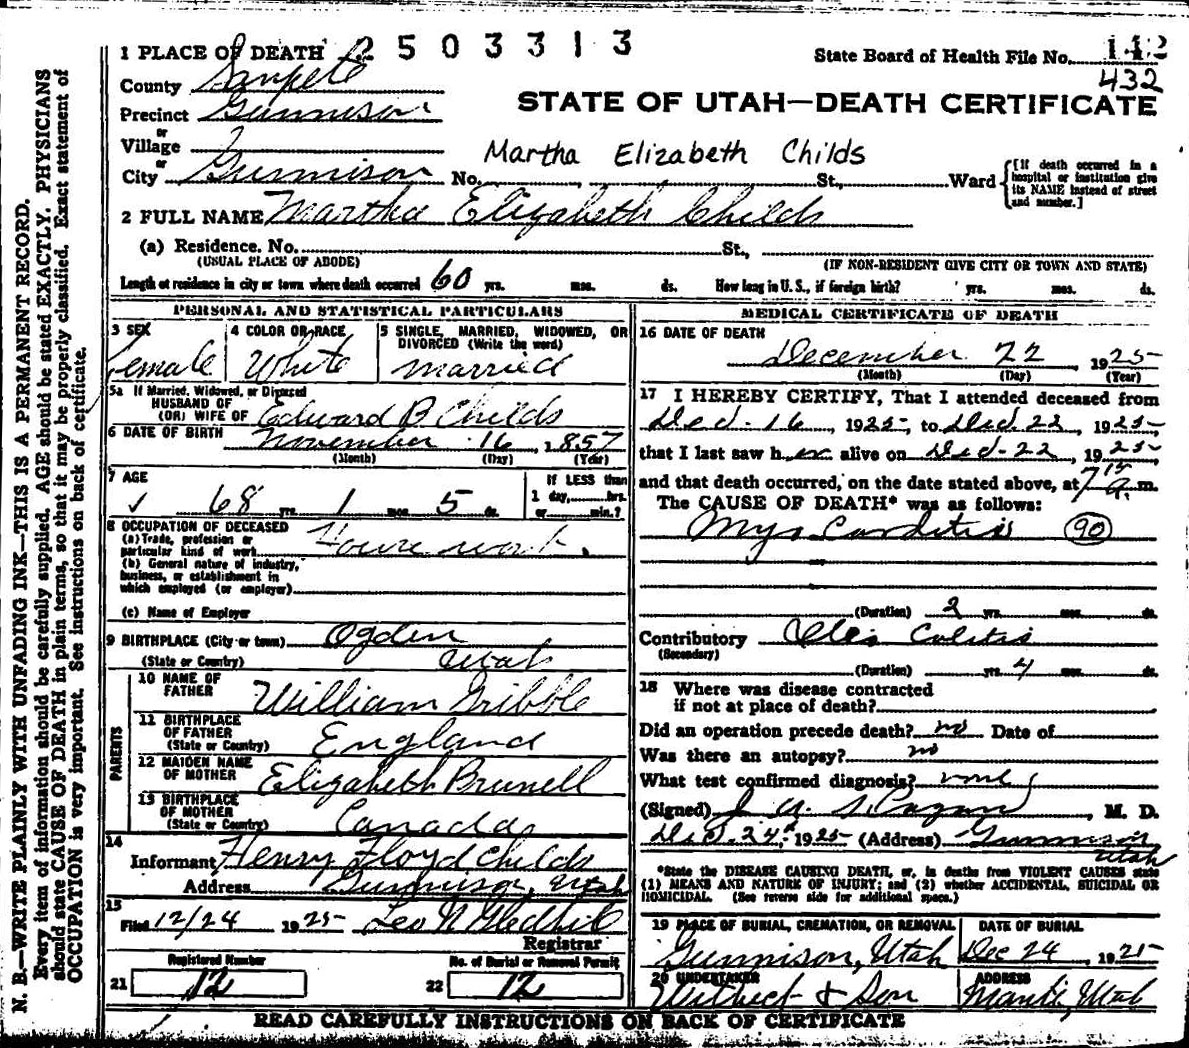 2503313
1 PLACE OF DEATH
State Board of Health File No. 112
432
County Sanpete
STATE OF UTAH—DEATH CERTIFICATE
Precinct Gunnison
or
Village
Martha Elizabeth Childs
or
City Gunnison No. St., Ward
[If death occurred in a hospital or institution give its NAME instead of street and number.]
2 FULL NAME Martha Elizabeth Childs
(a) Residence. No. St.,
(USUAL PLACE OF ABODE) (IF NON-RESIDENT GIVE CITY OR TOWN AND STATE)
Length of residence in city or town where death occurred 60 yrs. mos. ds. How long in U. S., if foreign birth? yrs. mos. ds.
PERSONAL AND STATISTICAL PARTICULARS
3 SEX 4 COLOR OR RACE 5 SINGLE, MARRIED, WIDOWED, OR
DIVORCED (Write the word)
Female White married
5a If Married, Widowed, or Divorced
HUSBAND OF
(OR) WIFE OF Edward B Childs
6 DATE OF BIRTH November 16, 1857
(Month) (Day) (Year)
7 AGE If LESS than
68 yrs. 1 mos. 5 ds. 1 day, hrs.
or min.?
8 OCCUPATION OF DECEASED
(a) Trade, profession or
particular kind of work House work.
(b) General nature of industry,
business, or establishment in
which employed (or employer)
(c) Name of Employer
9 BIRTHPLACE (City or town) Ogden
(State or Country) Utah
PARENTS
10 NAME OF
FATHER William Gribble
11 BIRTHPLACE
OF FATHER
(State or Country) England
12 MAIDEN NAME
OF MOTHER Elizabeth Brunell
13 BIRTHPLACE
OF MOTHER
(State or Country) Canada
14
Informant Henry Floyd Childs
Address Gunnison, Utah
15
Filed 12/24 1925 Leo N Gledhill
Registrar
Registered Number No. of Burial or Removal Permit
21 12 22 12
MEDICAL CERTIFICATE OF DEATH
16 DATE OF DEATH
December 22 1925
(Month) (Day) (Year)
17 I HEREBY CERTIFY, That I attended deceased from
Dec. 16, 1925, to Dec. 22, 1925,
that I last saw her alive on Dec. 22, 1925
and that death occurred, on the date stated above, at 7 15 a.m.
The CAUSE OF DEATH* was as follows:
Myo Carditis 90
(Duration) 2 yrs. mos. ds.
Contributory Colitis
(Secondary)
(Duration) yrs. 4 mos. ds.
18 Where was disease contracted
if not at place of death?
Did an operation precede death? no Date of
Was there an autopsy? no
What test confirmed diagnosis? none
(Signed) , M. D.
Dec. 24, 1925 (Address) Gunnison
Utah
*State the DISEASE CAUSING DEATH, or, in deaths from VIOLENT CAUSES state
(1) MEANS AND NATURE OF INJURY; and (2) whether ACCIDENTAL, SUICIDAL OR
HOMICIDAL. (See reverse side for additional space.)
19 PLACE OF BURIAL, CREMATION, OR REMOVAL DATE OF BURIAL
Gunnison, Utah Dec 24, 1925
20 UNDERTAKER ADDRESS
& Son Manti, Utah
READ CAREFULLY INSTRUCTIONS ON BACK OF CERTIFICATE
N. B.—WRITE PLAINLY WITH UNFADING INK—THIS IS A PERMANENT RECORD.
Every item of information should be carefully supplied. AGE should be stated EXACTLY. PHYSICIANS
should state CAUSE OF DEATH in plain terms, so that it may be properly classified. Exact statement of
OCCUPATION is very important. See instructions on back of certificate.